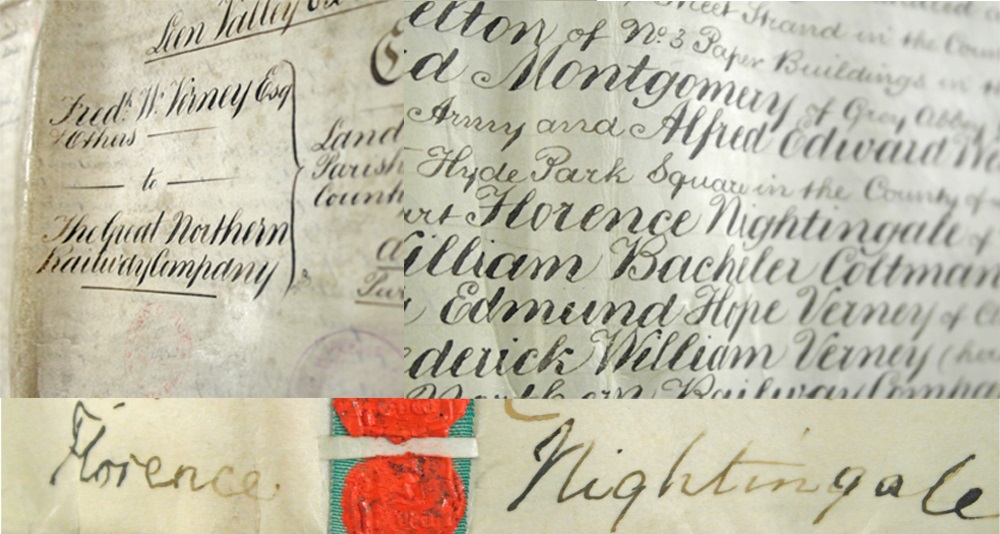 Leen Valley
Fredk. W. Verney Esq
& Others
to
The Great Northern
Railway Company
Land
Parish
County
elton of No. 3 Paper Buildings in
Street Strand in the Coun
d Montgomery of Grey Abbey
Army and Alfred Edward
Hyde Park Square in the County of
Florence Nightingale of
illiam Bacheler Coltman
Edmund Hope Verney of
derick William Verney (her
Northern Railway Compa
Florence Nightingale